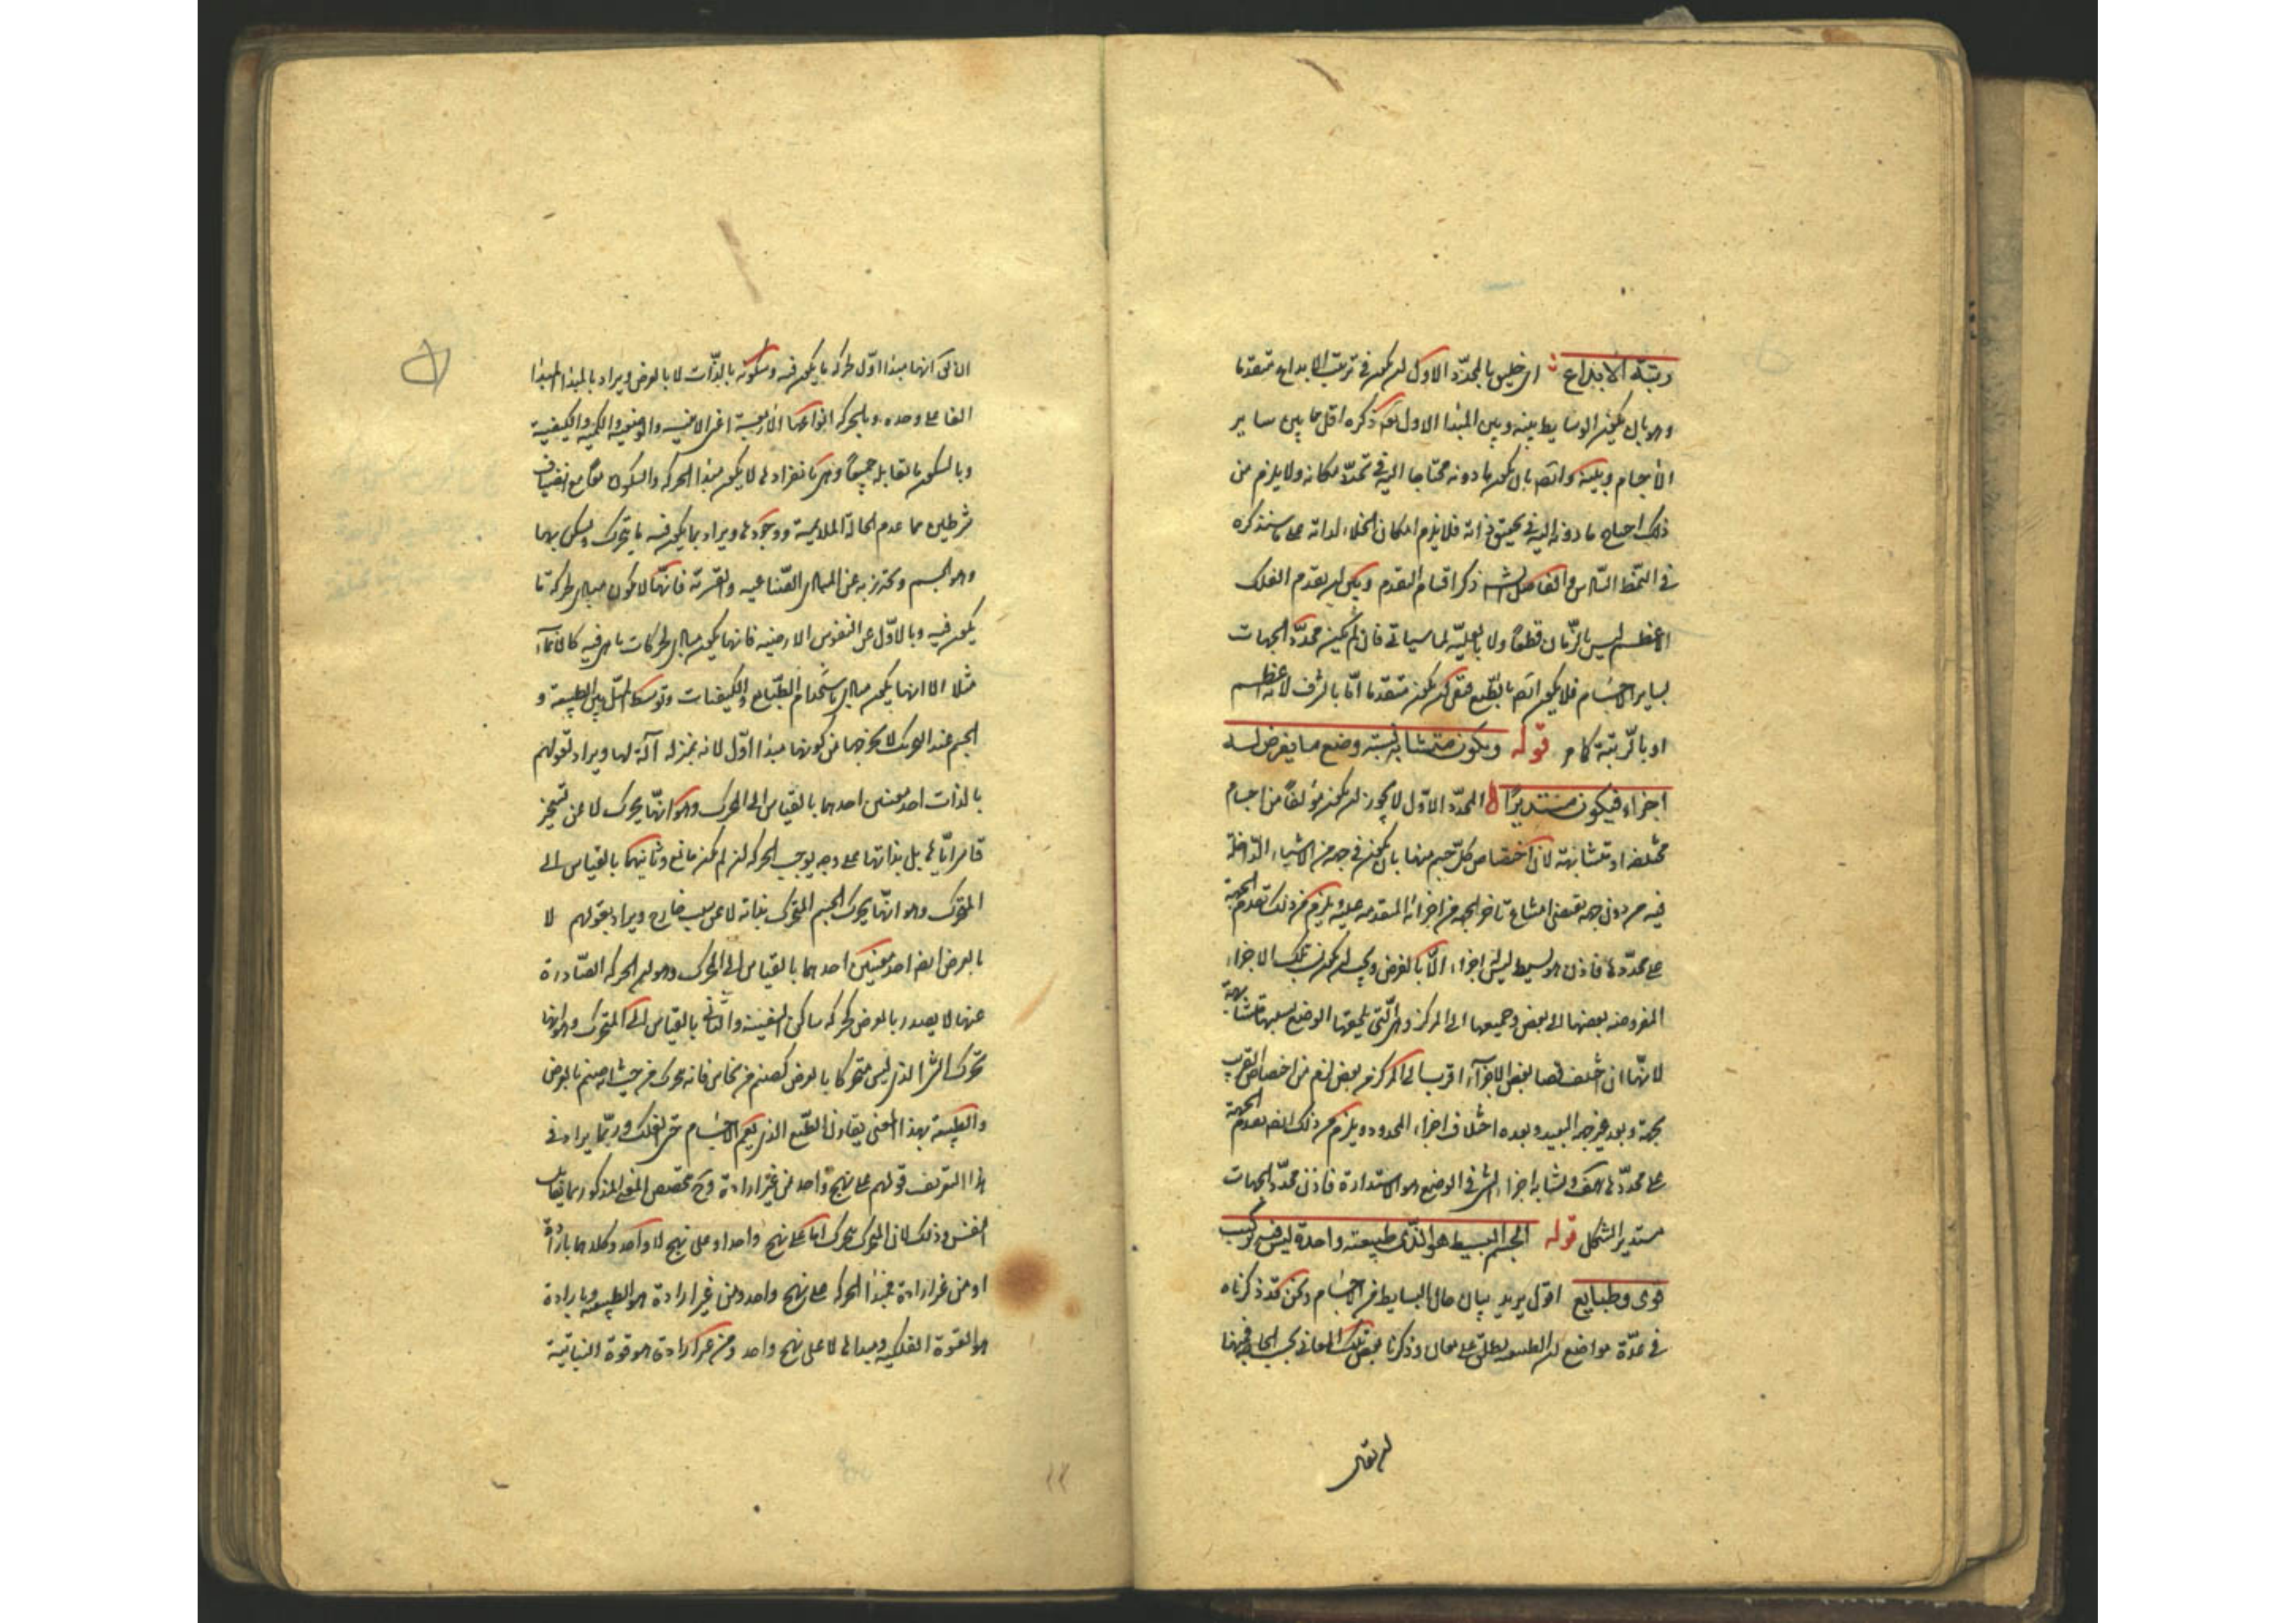 رتبة الابداع اى خليق بالمحدد الاول ان يكون فى ترتيب الابداع متقدما
وهو بان يكون الوسايط بينه وبين المبدا الاول ذكره اقل مما بين ساير
الاجسام وبينه وايضا بان يكون ما دونه محتاجا اليه فى تحدد مكانه ولا يلزم من
ذلك احتياج ما دونه اليه فى تحقق ذاته فلا يلزم امكان الخلاء لذاته على ما سنذكره
فى النمط السادس والفاضل الشارح ذكر اقسام التقدم وبين ان تقدم الفلك
الاعظم ليس بالزمان قطعا ولا بالعلية لما سياتى فان لم يكن محدد الجهات
لساير الاجسام فلا يكون ايضا بالطبع فبقى ان يكون متقدما اما بالشرف لانه اعظم
او بالرتبة كما مر قوله ويكون متشابه نسبة وضع ما يفرض له
اجزاء فيكون مستديرا المحدد الاول لا يجوز ان يكون مؤلفا من اجسام
مختلفة او متشابهة لان اختصاص كل جسم منها بان يكون فى جهة من الاشياء الداخلة
فيه من دون جهة يقتضى امتناع تاخر الجهة من اجزائه المتقدمة عليه ويلزم من ذلك تقدم الجهة
على محددها فاذن هو بسيط ليس له اجزاء الا بالفرض ويجب ان يكون نسب تلك الاجزاء
المفروضة بعضها الى بعض وجميعها الى المركز وهى التى يلحقها الوضع بسببها متشابهة
لانها ان اختلفت فصار بعض الاجزاء اقرب الى المركز من بعض لزم من اختصاص القرب
بجهة وبعد غير جهة البعيد وبعده اختلاف اجزاء المحدد ويلزم من ذلك ايضا تقدم الجهة
على محددها هف وتشابه اجزاء الشى فى الوضع هو الاستدارة فاذن محدد الجهات
مستدير الشكل قوله الجسم البسيط هو الذى طبيعته واحدة ليس فيه تركيب
قوى وطبايع اقول يريد بيان حال البسايط من الاجسام ونحن قد ذكرناه
فى عدة مواضع ان الطبيعة يطلق على معان وذكرنا بعض تلك المعانى بحسب الحاجة فمنها
انها مبدا اول لحركة ما يكون فيه وسكونه بالذات لا بالعرض ويراد بالمبدا المبدا
الفاعلى وحده وبالحركة انواعها الاربعة اعنى الاينية والوضعية والكمية والكيفية
وبالسكون ما تقابلها جميعا وهى بانفرادها لا يكون مبدا الحركة والسكون معا بل مع انضياف
شرطين هما عدم الحالة الملايمة ووجودها ويراد بما يكون فيه ما يتحرك ويسكن بها
وهو الجسم ويحترز به عن المبادى الصناعية والقسرية فانها لا يكون مبادى لحركة ما
يكون فيه وبالاول عن النفوس الارضية فانها يكون مبادى لحركات ما هى فيه كالانماء
مثلا الا انها يكون مبادى باستخدام الطبايع والكيفيات وتوسط الميل بين الطبيعة و
الجسم عند التحريك لا يخرجها من كونها مبدا اول لانه بمنزلة آلة لها ويراد بقولهم
بالذات احد معنيين احدهما بالقياس الى المحرك وهو انها يحرك لا عن تسخير
قاسر اياها بل بذاتها على وجه يوجب الحركة ان لم يكن مانع وثانيهما بالقياس الى
المتحرك وهو انها يحرك الجسم المتحرك بذاته لا عن سبب خارج ويراد بقولهم لا
بالعرض ايضا احد معنيين احدهما بالقياس الى المحرك وهو ان الحركة الصادرة
عنها لا يصدر بالعرض كحركة ساكن السفينة والثانى بالقياس الى المتحرك وهو انها
تحرك الشى الذى ليس متحركا بالعرض كصنم من نحاس فانه يحرك من حيث انه صنم بالعرض
والطبيعة بهذا المعنى يقارن الطبع الذى يعم الاجسام حتى الفلك وربما يراد فى
هذا التعريف قولهم على نهج واحد من غير ارادة وح يتخصص المعنى المذكور بما يقابل
النفس وذلك لان المتحرك يتحرك اما على نهج واحد او على نهج لا واحد وكلاهما بارادة
او من غير ارادة فمبدا الحركة على نهج واحد ومن غير ارادة هو الطبيعة وبارادة
هو القوة الفلكية ومبداها لا على نهج واحد ومن غير ارادة هو قوة النباتية